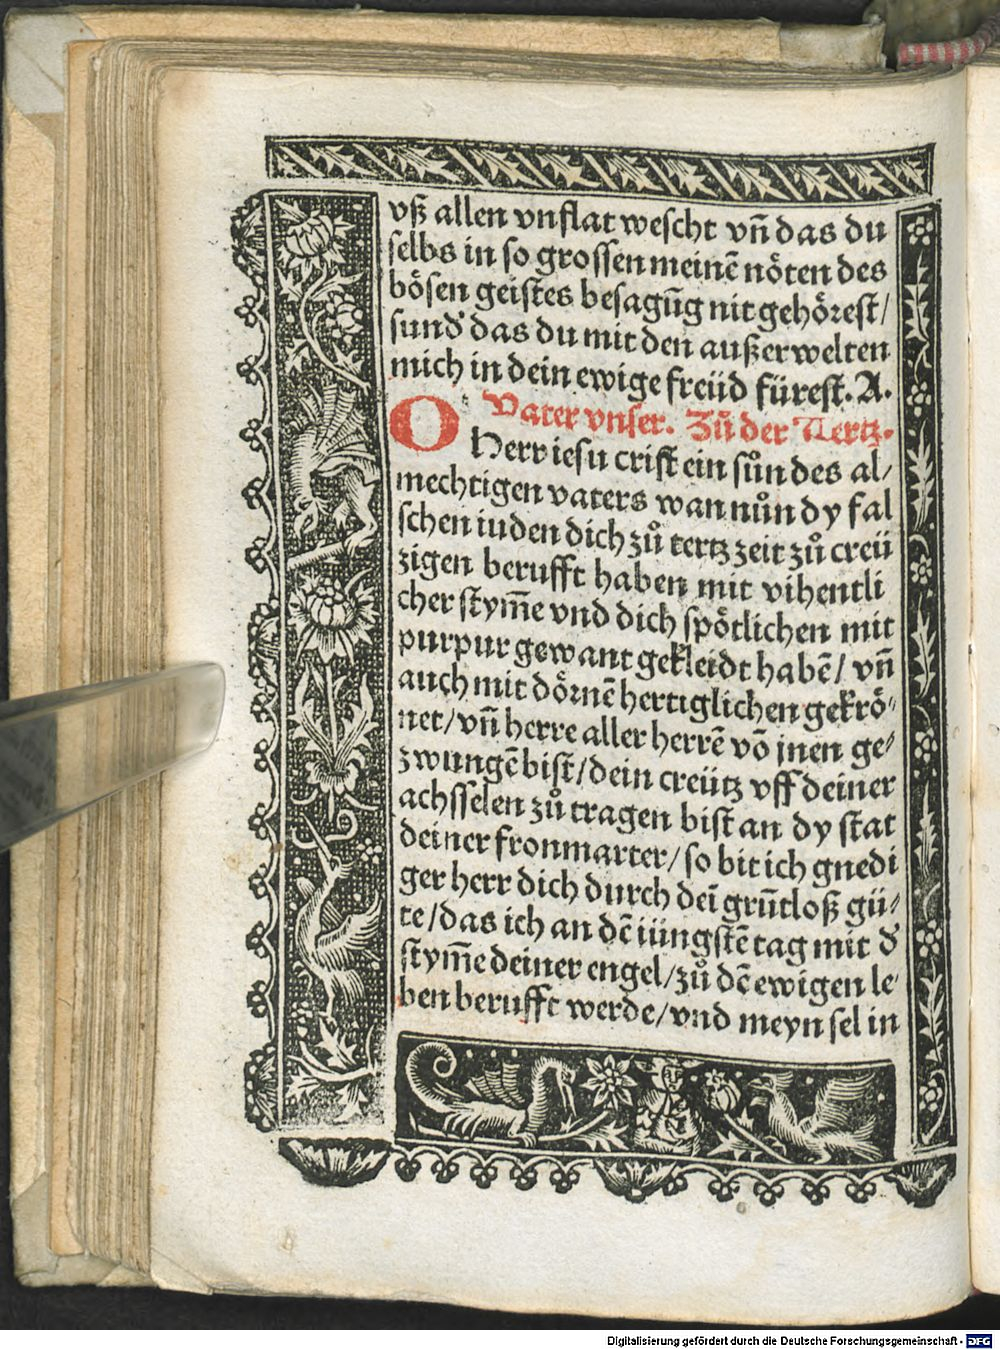 vß allen vnflat wescht vñ das du
selbs in so grossen meinē nöten des
bösen geistes besagūg nit gehörest/
sund͛ das du mit den außerwelten
mich in dein ewige freüd fürest. A.
Vater vnser. Zů der Tertz.
O Herr iesu crist ein sůn des al/
mechtigen vaters wan nůn dy fal
schen iuden dich zů tertz zeit zů creü
zigen berufft haben mit vihentli
cher stym̄e vnd dich spötlichen mit
purpur gewant gekleidt habē/ vñ
auch mit dörnē hertiglichen gekrö/
net/ vñ herre aller herrē vō jnen ge/
zwungē bist/ dein creütz vff deiner
achsselen zů tragen bist an dy stat
deiner fronmarter/ so bit ich gnedi
ger herr dich durch deī grūtloß gü/
te/ das ich an dē iüngstē tag mit d͛
stym̄e deiner engel/ zů dē ewigen le/
ben berufft werde/ vnd meyn sel in
Digitalisierung gefördert durch die Deutsche Forschungsgemeinschaft - DFG